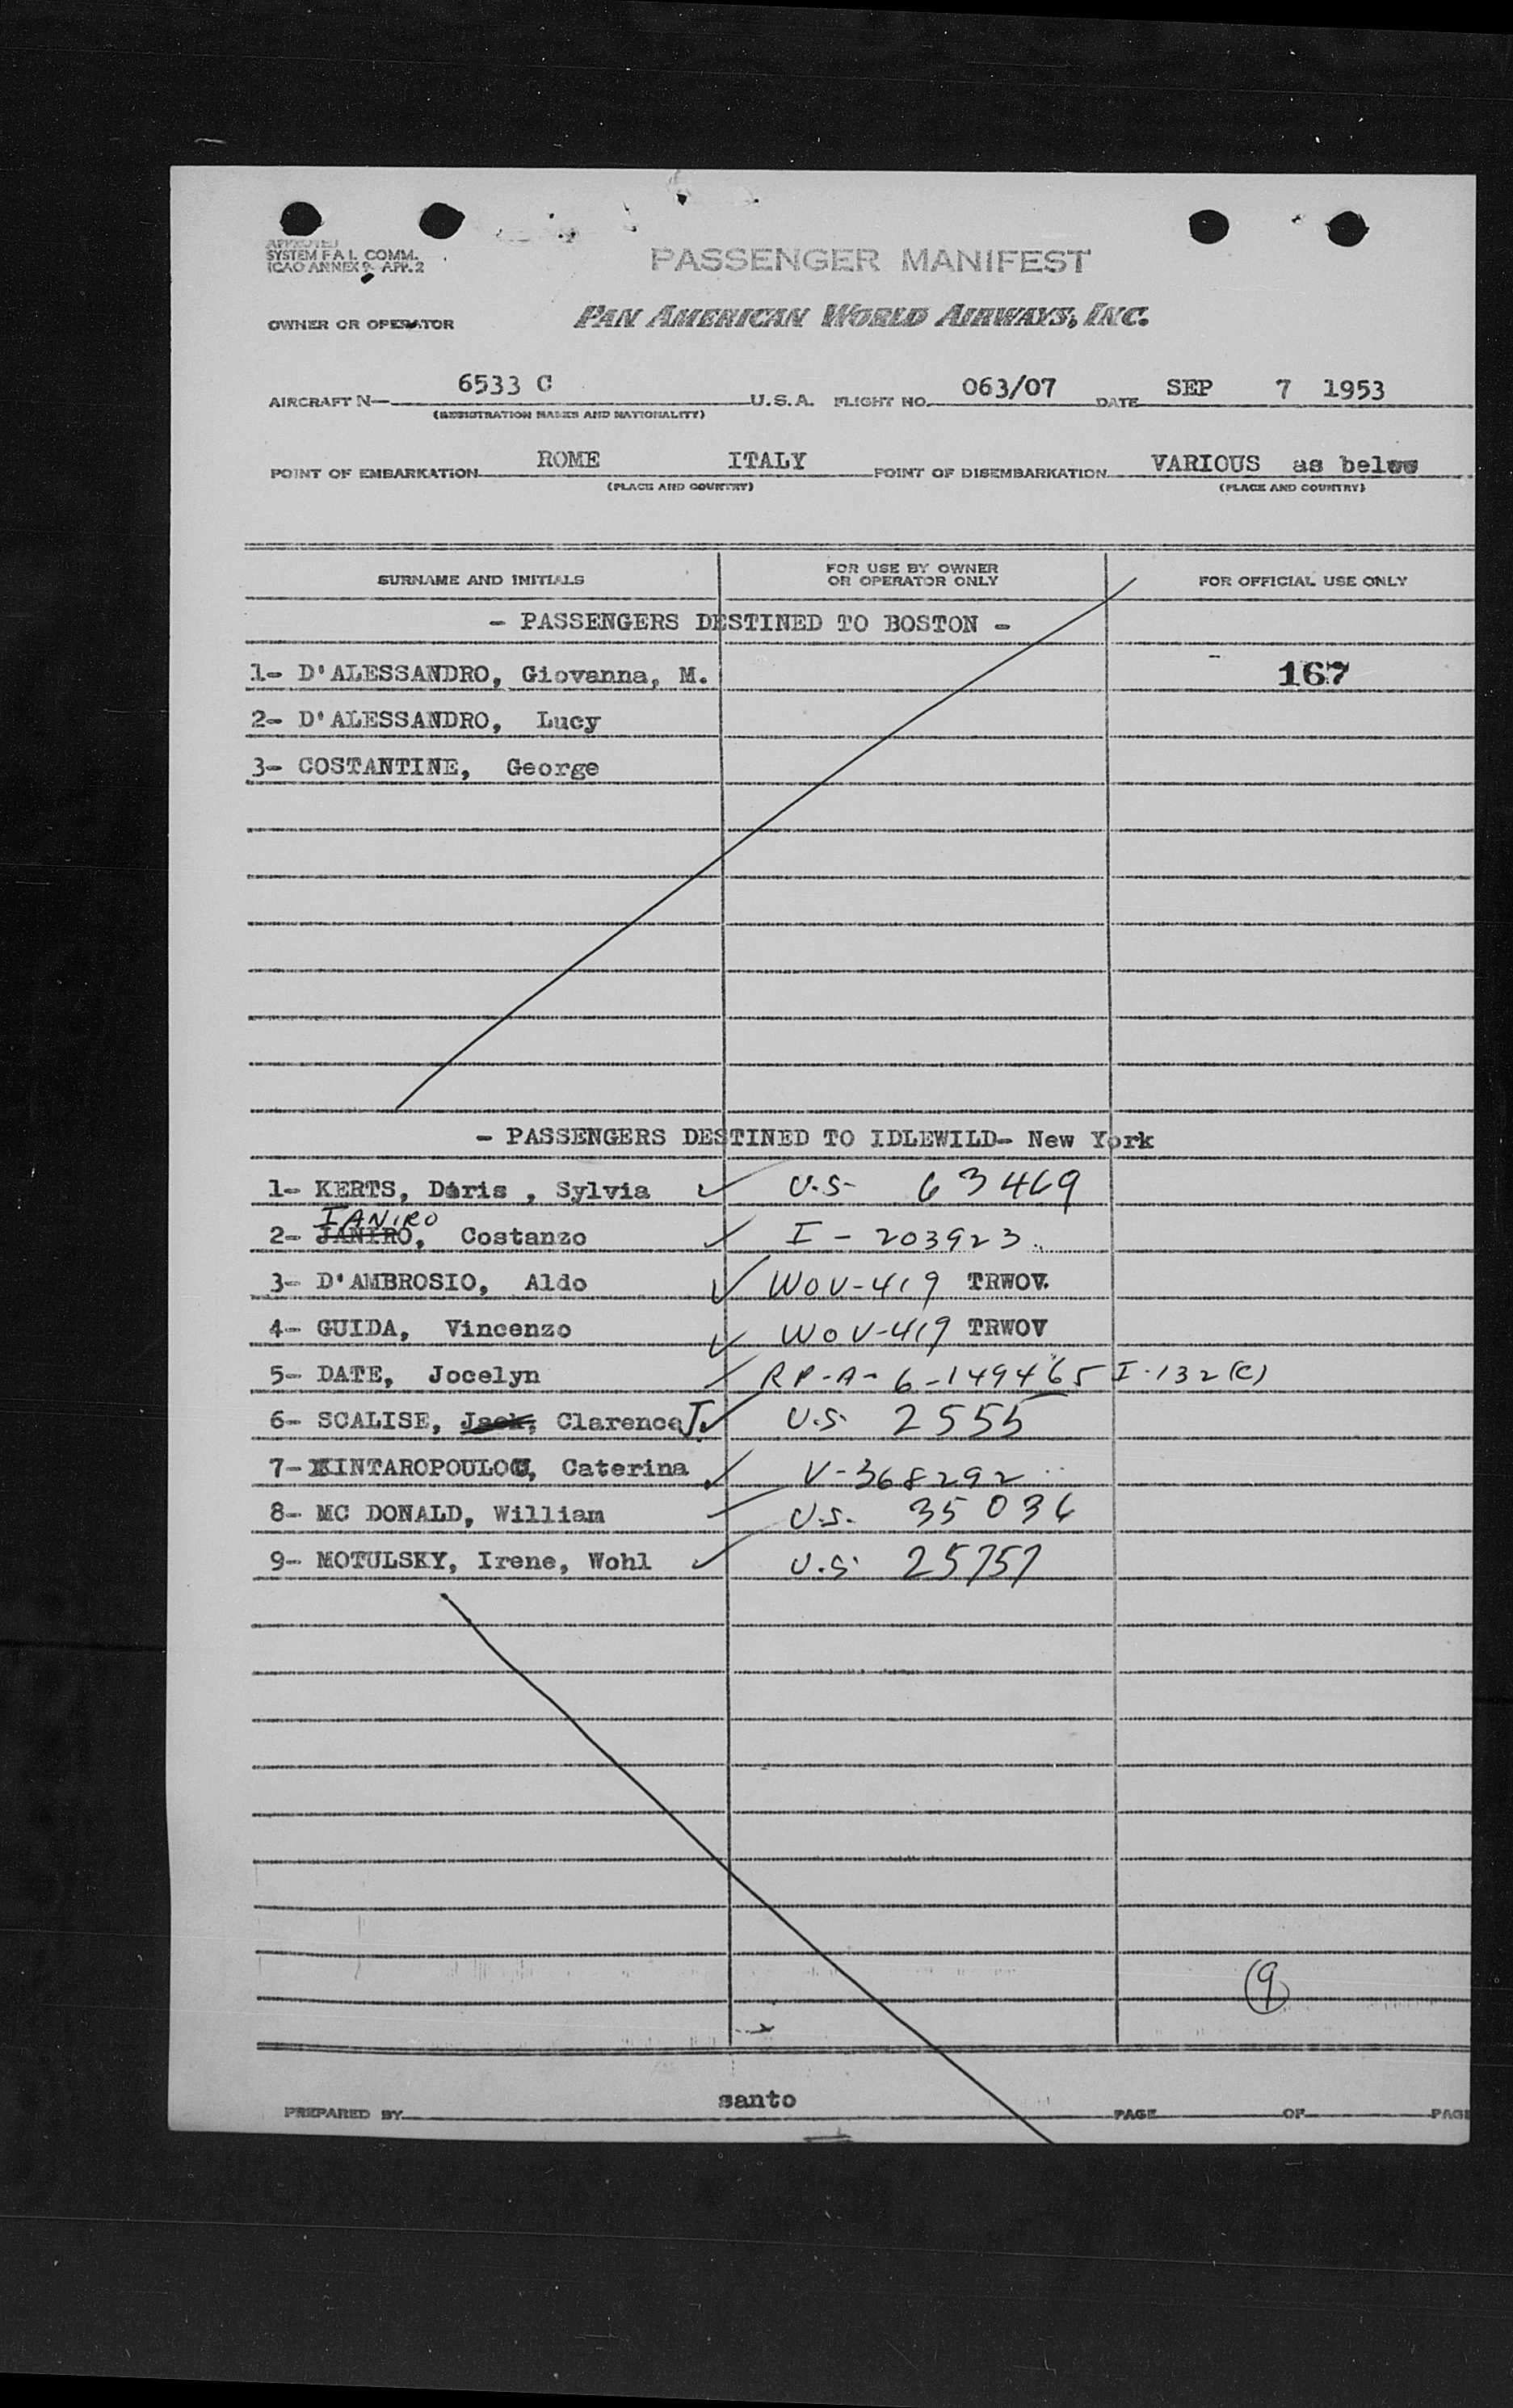 APPROVED
SYSTEM F A L COMM.
ICAO ANNEX 9- APP. 2
PASSENGER MANIFEST
OWNER OR OPERATOR PAN AMERICAN WORLD AIRWAYS, INC.
AIRCRAFT N— 6533 C U.S.A. FLIGHT NO. 063/07 DATE SEP 7 1953
(REGISTRATION MARKS AND NATIONALITY)
POINT OF EMBARKATION ROME ITALY POINT OF DISEMBARKATION VARIOUS as below
(PLACE AND COUNTRY) (PLACE AND COUNTRY)
SURNAME AND INITIALS FOR USE BY OWNER OR OPERATOR ONLY FOR OFFICIAL USE ONLY
- PASSENGERS DESTINED TO BOSTON -
1- D'ALESSANDRO, Giovanna, M. 167
2- D'ALESSANDRO, Lucy
3- COSTANTINE, George
- PASSENGERS DESTINED TO IDLEWILD- New York
1- KERTS, Doris , Sylvia ✓ U.S- 63469
IANIRO
2- JANIRO, Costanzo ✓ I - 203923
3- D'AMBROSIO, Aldo ✓ WOV-419 TRWOV.
4- GUIDA, Vincenzo ✓ WOV-419 TRWOV
5- DATE, Jocelyn ✓ RP-A-6-149465 I-132(C)
6- SCALISE, Jack, Clarence J. ✓ U.S. 2555
7- KINTAROPOULOU, Caterina ✓ V-368292
8- MC DONALD, William ✓ U.S. 35036
9- MOTULSKY, Irene, Wohl ✓ U.S. 25757
9
PREPARED BY santo PAGE OF PAGE